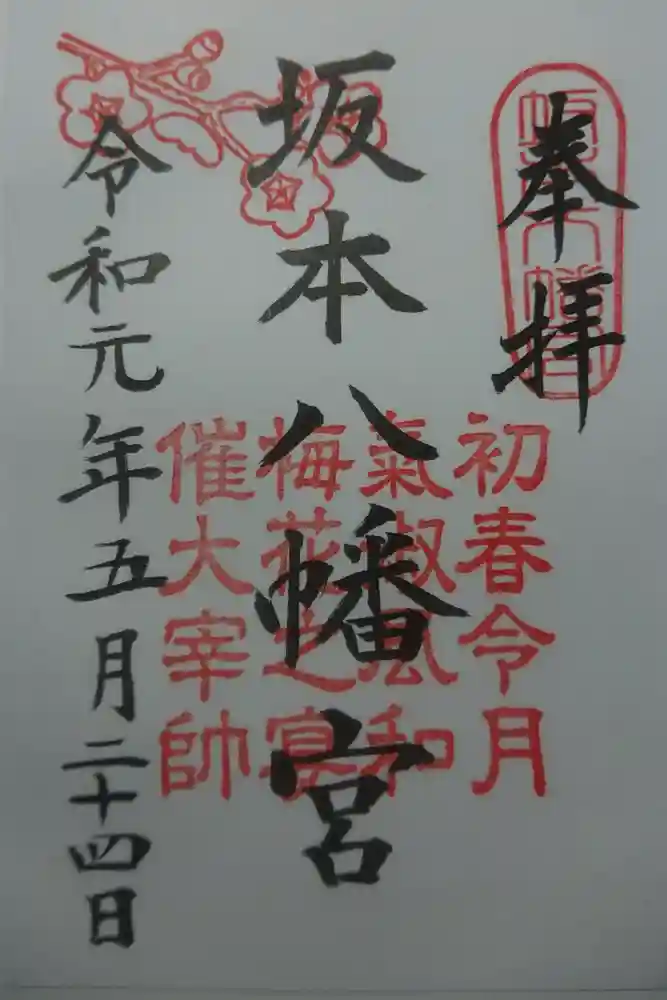 奉拝
坂本八幡宮
初春令月
氣淑風和
梅花之宴
催大宰帥
令和元年五月二十四日